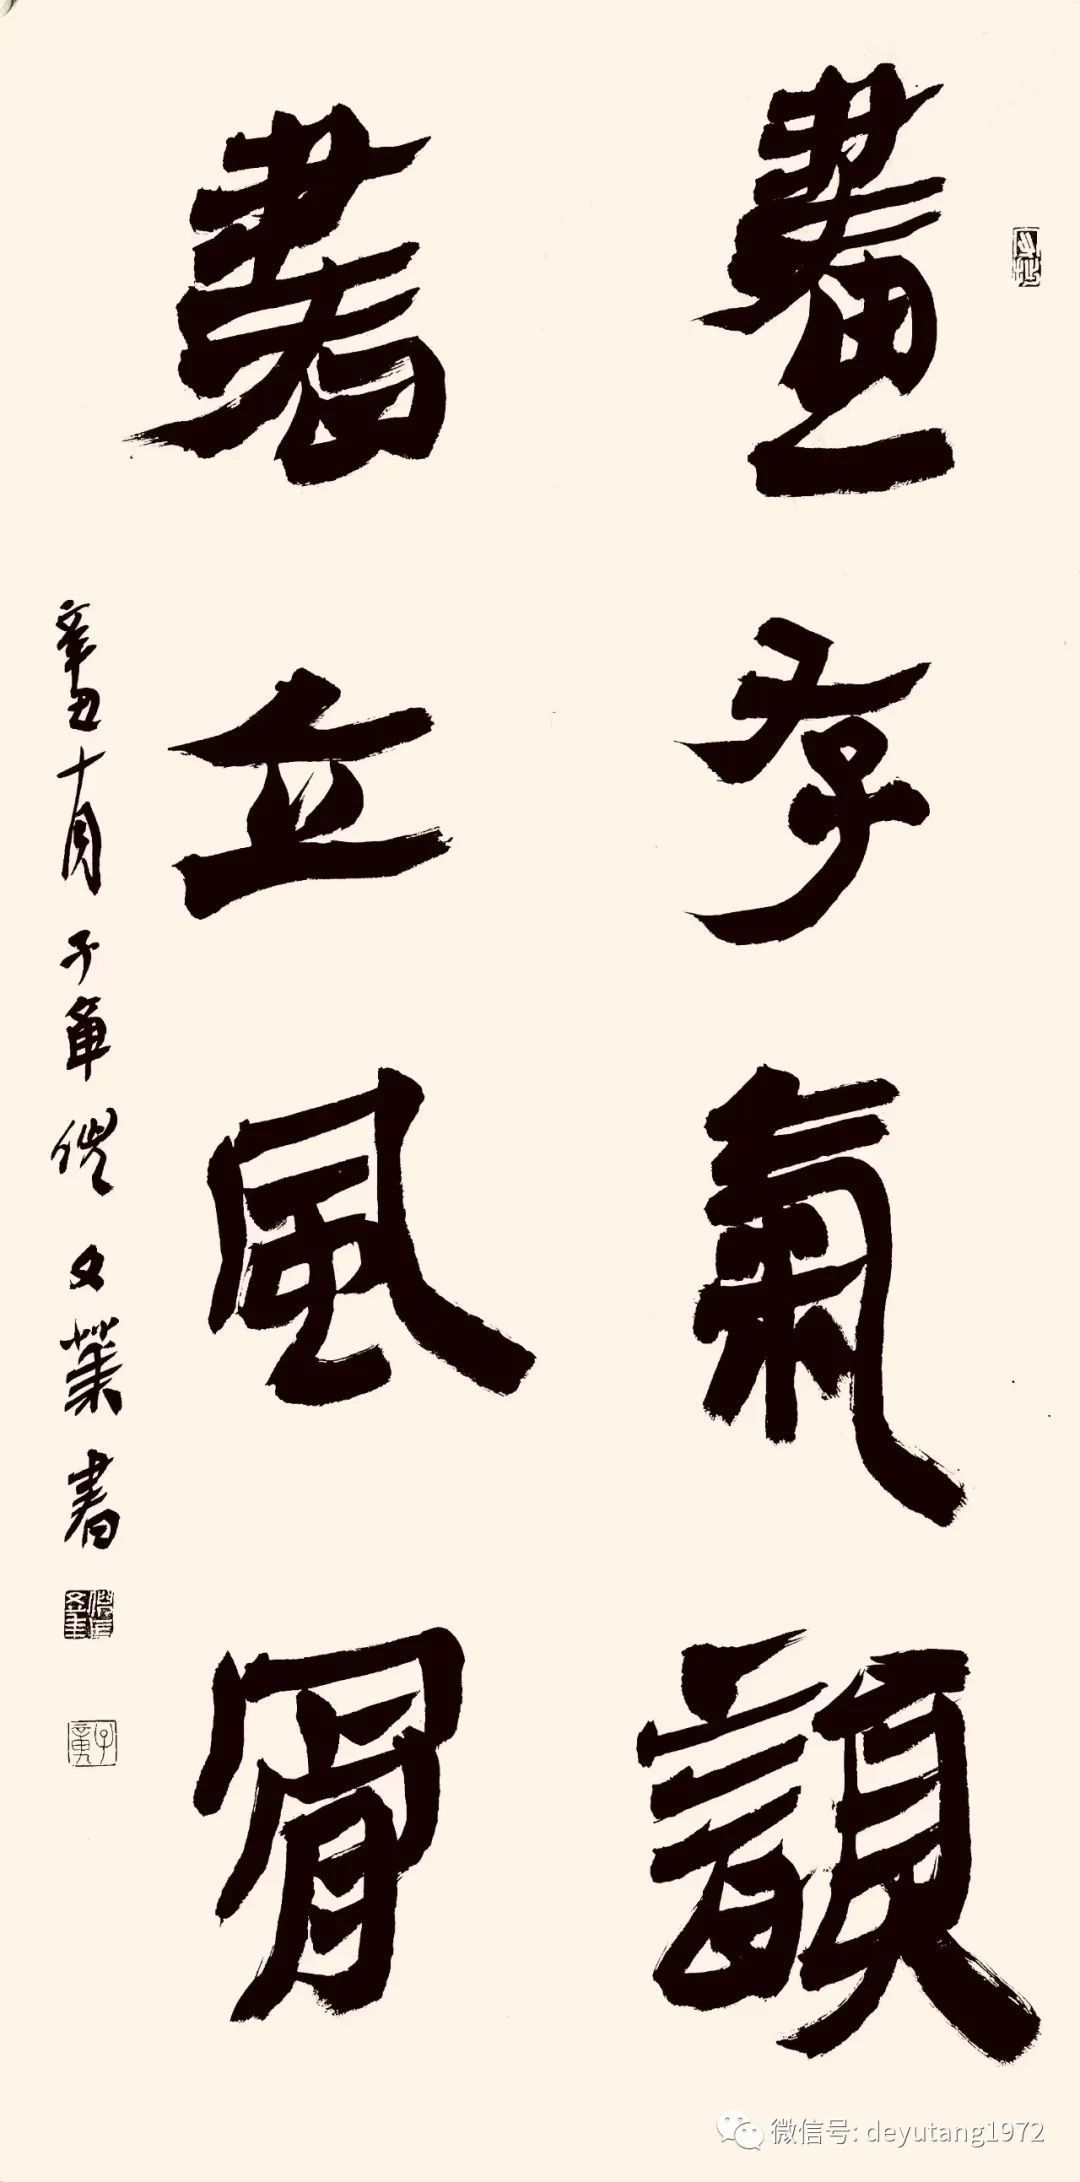 畫存氣韻
書立風骨
辛丑十月子章儘文業書
微信号: deyutang1972